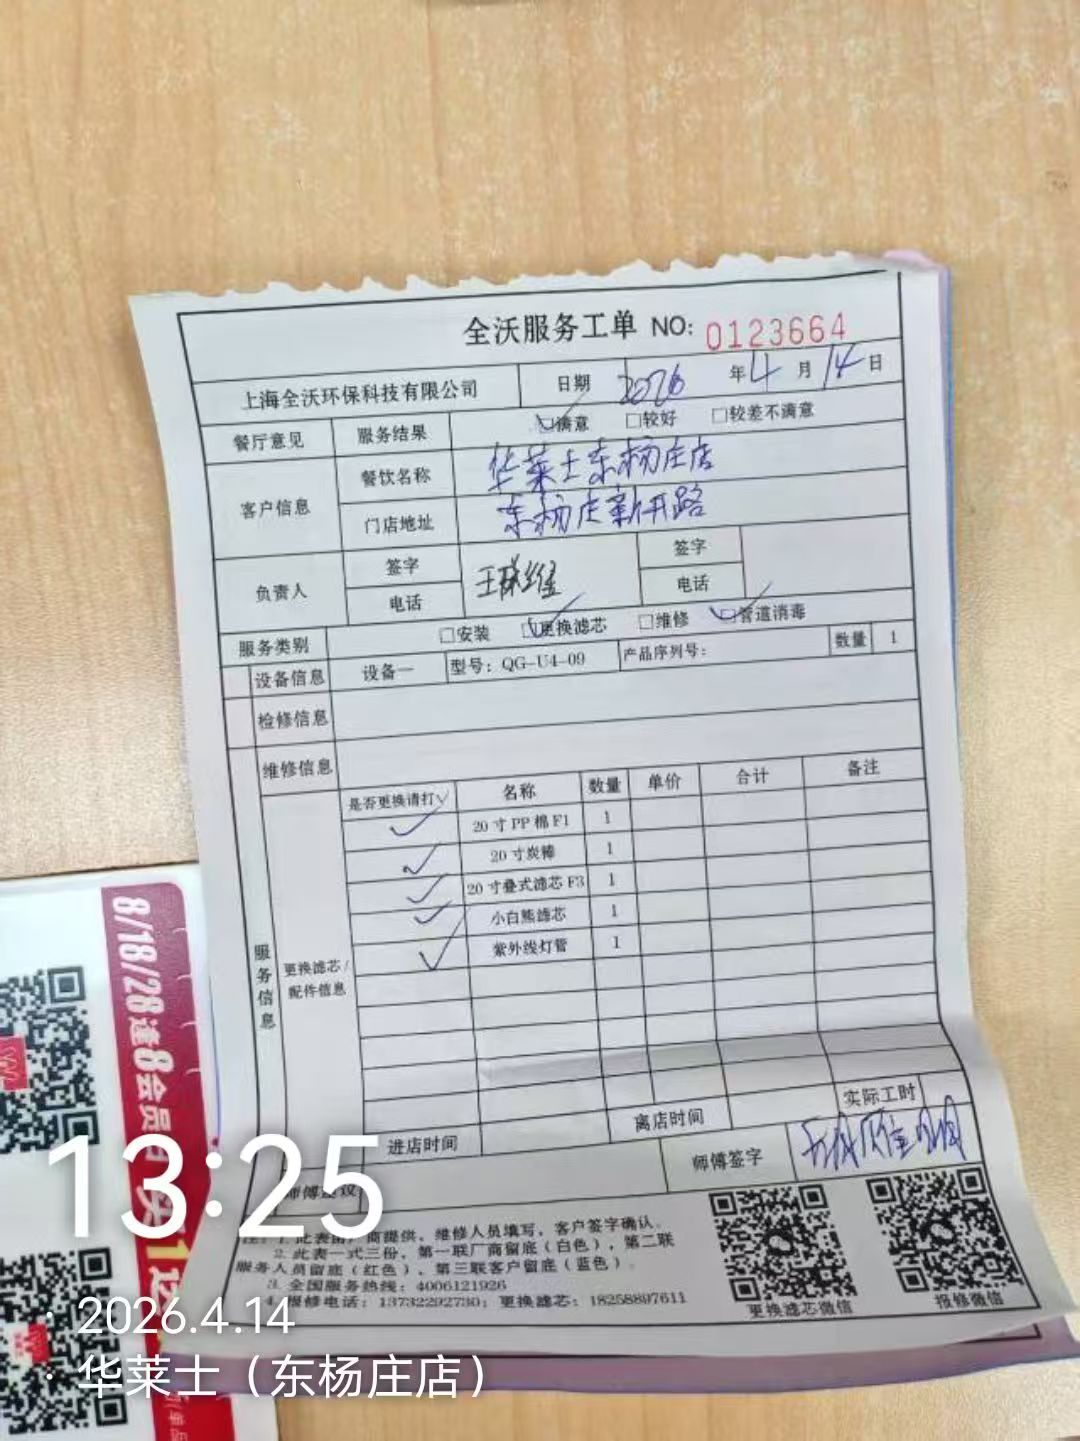 全沃服务工单 NO: 0123664
上海全沃环保科技有限公司 日期 2026 年 4 月 14 日
餐厅意见 服务结果 ☑满意 □较好 □较差不满意
客户信息 餐饮名称 华莱士东杨庄店
门店地址 东杨庄新开路
负责人 签字 签字
电话 电话
服务类别 □安装 ☑更换滤芯 □维修 ☑管道消毒
设备信息 设备一 型号：QG-U4-09 产品序列号： 数量 1
检修信息
维修信息
是否更换请打√ 名称 数量 单价 合计 备注
✓ 20寸PP棉F1 1
✓ 20寸炭棒 1
✓ 20寸叠式滤芯F3 1
✓ 小白熊滤芯 1
✓ 紫外线灯管 1
服务信息
更换滤芯/
配件信息
进店时间 离店时间 实际工时
师傅建议 师傅签字
注：1.此表由厂商提供，维修人员填写，客户签字确认。
2.此表一式三份，第一联厂商留底（白色），第二联
服务人员留底（红色），第三联客户留底（蓝色）。
3.全国服务热线：4006121926
4.报修电话：13732292730；更换滤芯：18258897611
更换滤芯微信 报修微信
8/18/28逢8会员日
13:25
2026.4.14
华莱士（东杨庄店）